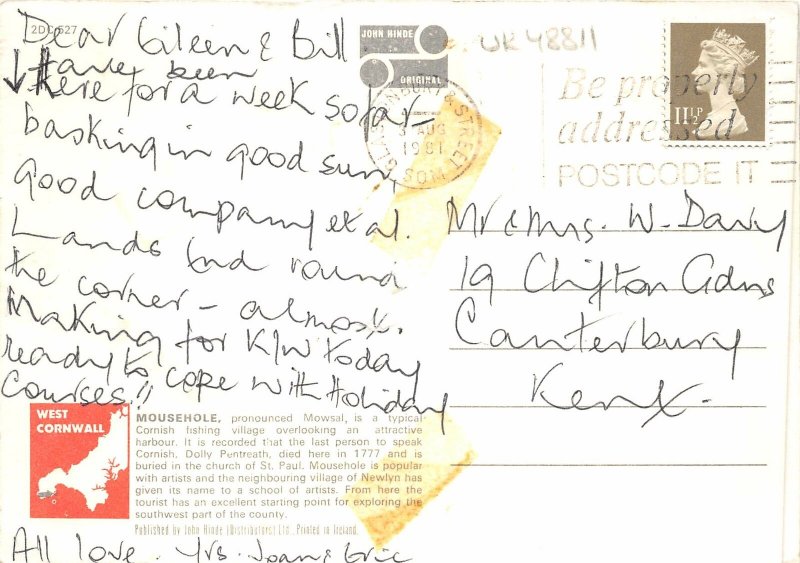 2DC 527
Dear Eileen & Bill
Have been
here for a week so far
basking in good sun,
good company et al.
Lands End round
the corner – almost.
Making for K/W today
ready to cope with Holiday
Courses!!
WEST
CORNWALL
MOUSEHOLE, pronounced Mowsal, is a typical
Cornish fishing village overlooking an attractive
harbour. It is recorded that the last person to speak
Cornish, Dolly Pentreath, died here in 1777 and is
buried in the church of St. Paul. Mousehole is popular
with artists and the neighbouring village of Newlyn has
given its name to a school of artists. From here the
tourist has an excellent starting point for exploring the
southwest part of the county.
Published by John Hinde (Distributors) Ltd., Printed in Ireland.
All love. Yrs. Joan & Eric
JOHN HINDE
ORIGINAL
UK 48811
& STREET
AUG
1981
SOM
Be properly
addressed
POSTCODE IT
11½P
Mr & Mrs. W. Davy
19 Clifton Gdns
Canterbury
Kent.